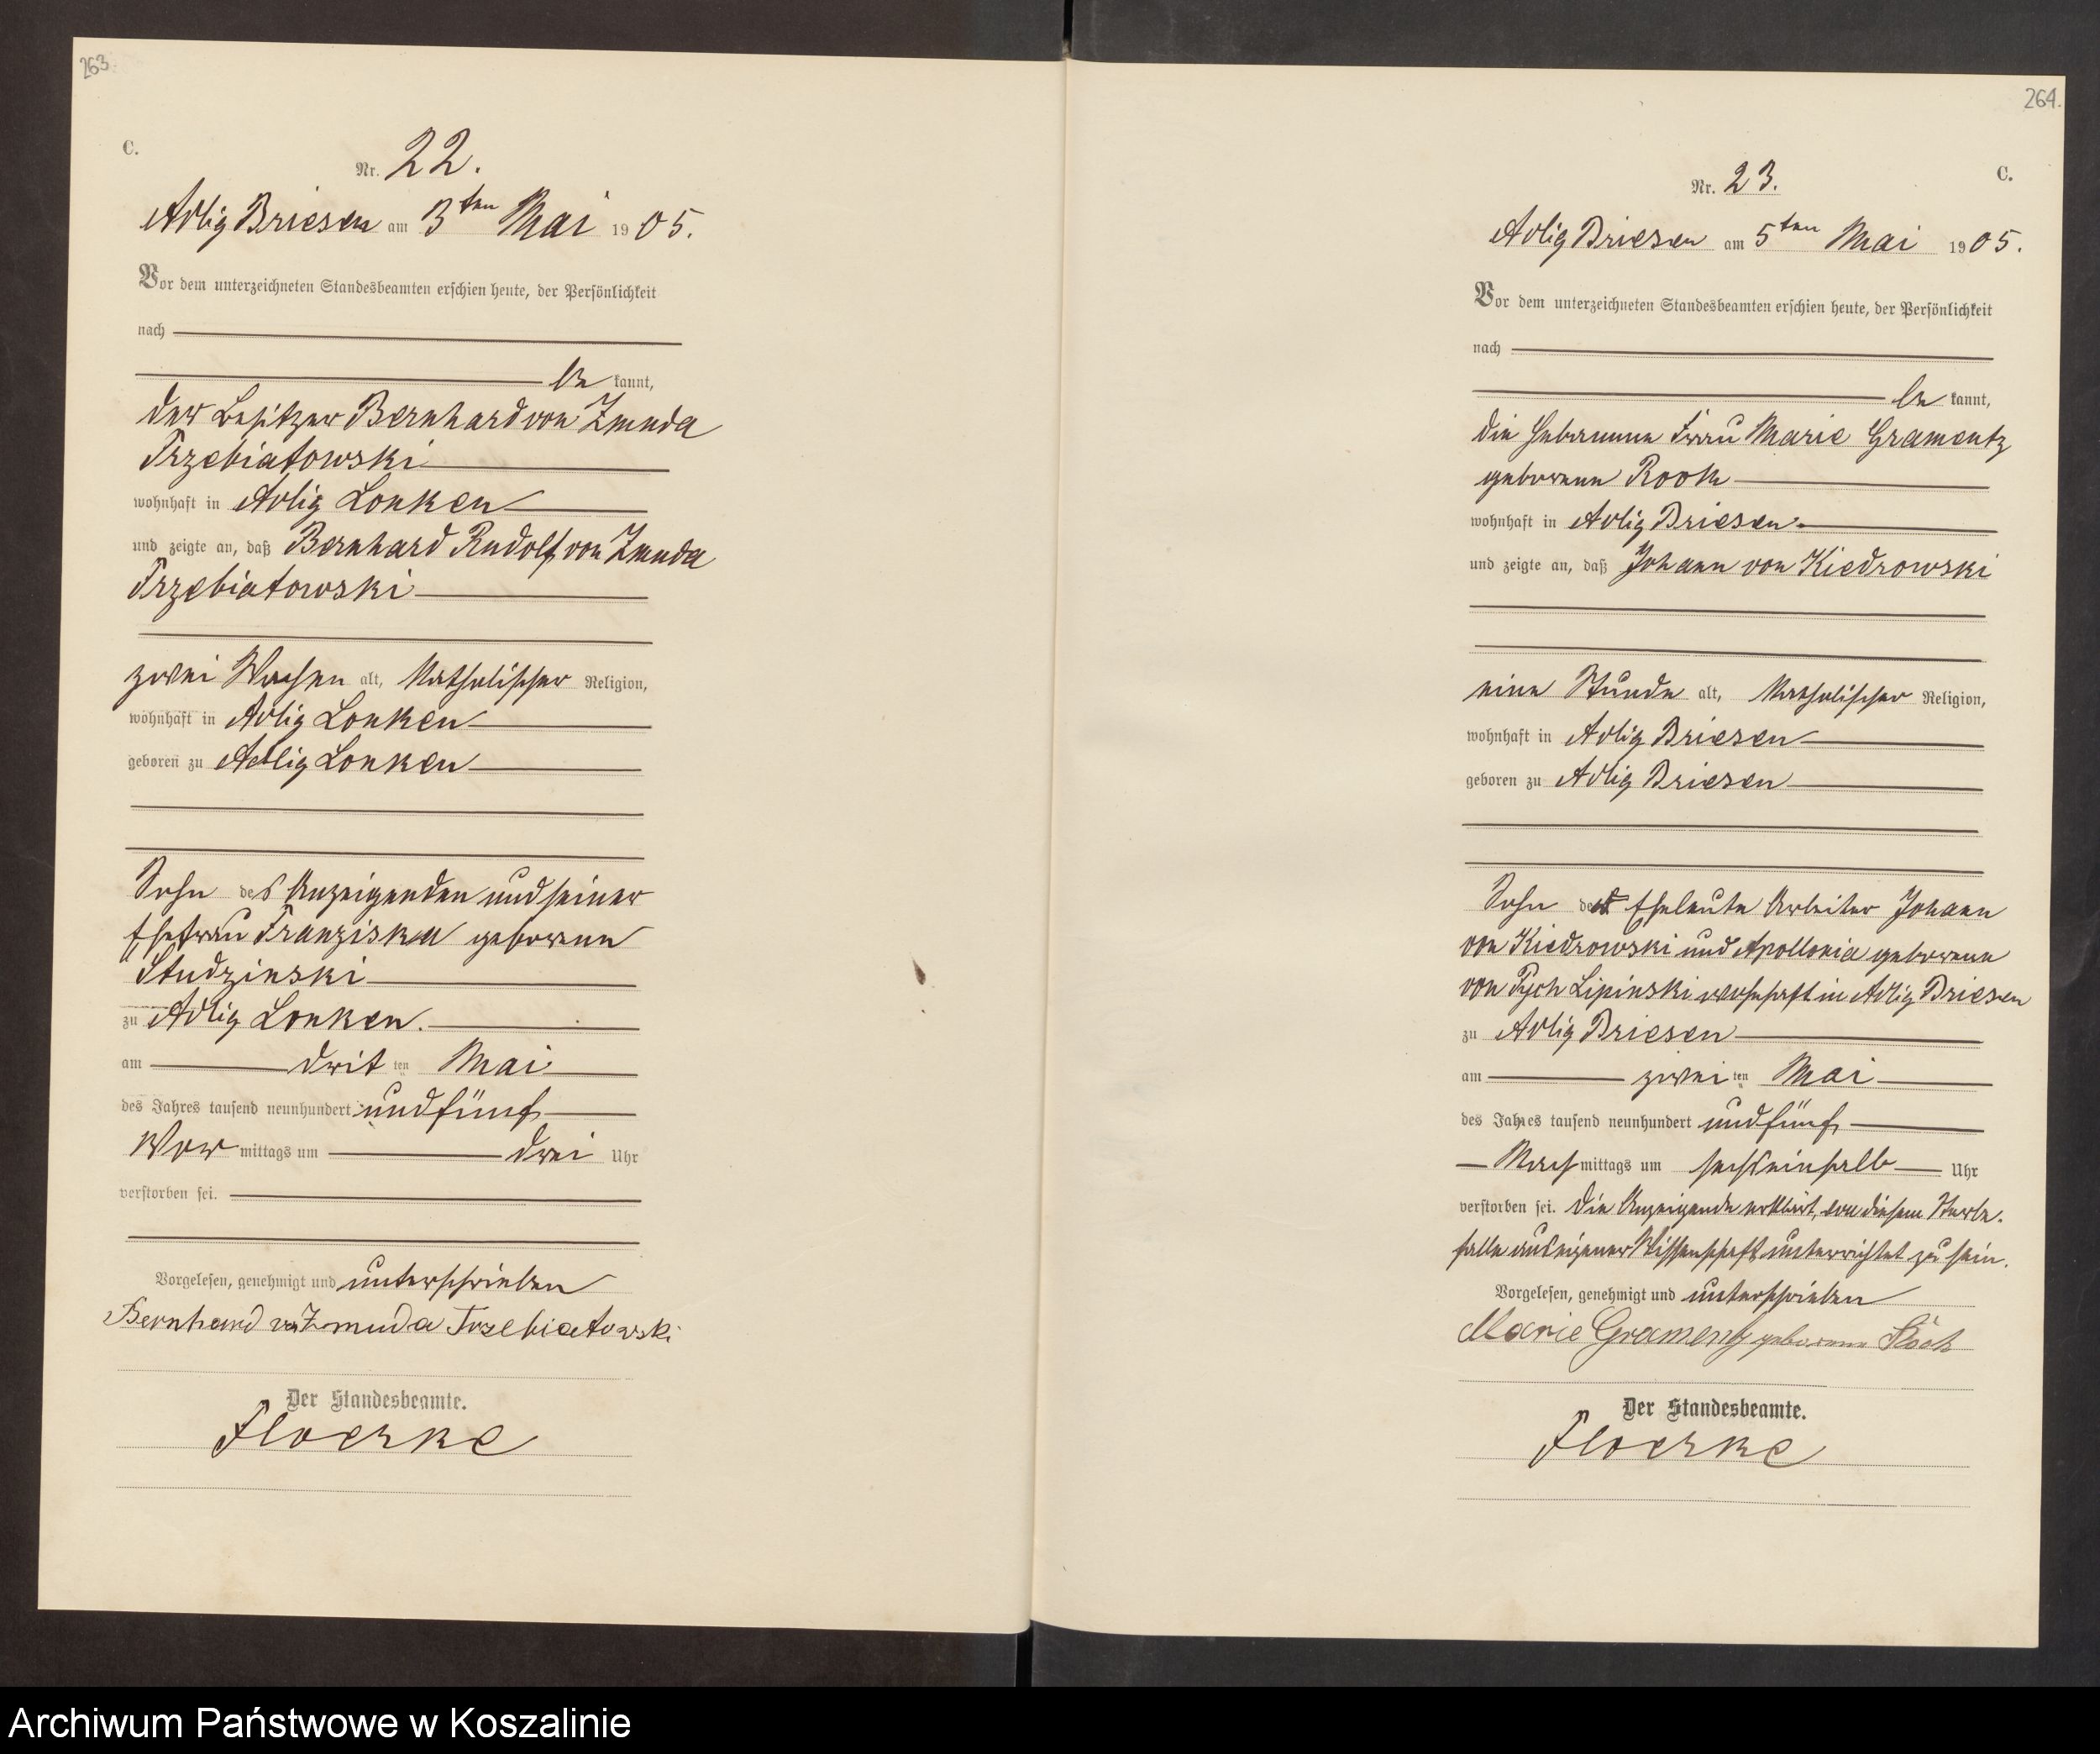 263.
C.
Nr. 22.
Adlig Briesen am 3ten Mai 1905.
Vor dem unterzeichneten Standesbeamten erschien heute, der Persönlichkeit
nach
be kannt,
der Besitzer Bernhard von Zmuda
Trzebiatowski
wohnhaft in Adlig Lonken
und zeigte an, daß Bernhard Rudolf von Zmuda
Trzebiatowski
zwei Wochen alt, katholischer Religion,
wohnhaft in Adlig Lonken
geboren zu Adlig Lonken
Sohn des Anzeigenden und seiner
Ehefrau Franziska geborene
Studzinski
zu Adlig Lonken.
am drit ten Mai
des Jahres tausend neunhundert und fünf
Vor mittags um drei Uhr
verstorben sei.
Vorgelesen, genehmigt und unterschrieben
Bernhard von Zmuda Trzebiatowski
Der Standesbeamte.
Floerke
264.
C.
Nr. 23.
Adlig Briesen am 5ten Mai 1905.
Vor dem unterzeichneten Standesbeamten erschien heute, der Persönlichkeit
nach
be kannt,
die Hebamme Frau Marie Gramentz
geborene
wohnhaft in Adlig Briesen
und zeigte an, daß Johann von Kiedrowski
eine Stunde alt, katholischer Religion,
wohnhaft in Adlig Briesen
geboren zu Adlig Briesen
Sohn der Eheleute Arbeiter Johann
von Kiedrowski und Apollonia geborene
von Pych Lipinski wohnhaft in Adlig Briesen
zu Adlig Briesen
am zwei ten Mai
des Jahres tausend neunhundert und fünf
Nach mittags um sechseinhalb Uhr
verstorben sei. Die Anzeigende erklärt, von diesem Sterbe-
falle aus eigener Wissenschaft unterrichtet zu sein.
Vorgelesen, genehmigt und unterschrieben
Marie Gramentz geborene
Der Standesbeamte.
Floerke
Archiwum Państwowe w Koszalinie